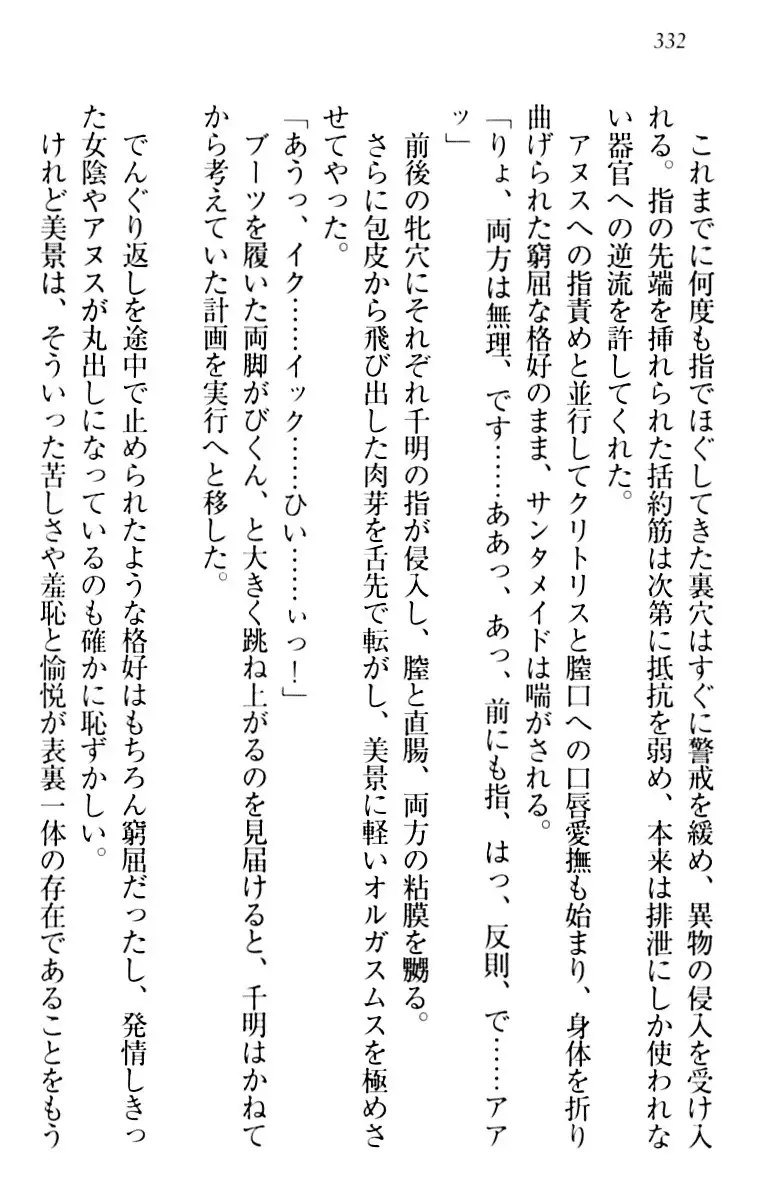 332
これまでに何度も指でほぐしてきた裏穴はすぐに警戒を緩め、異物の侵入を受け入
れる。指の先端を挿れられた括約筋は次第に抵抗を弱め、本来は排泄にしか使われな
い器官への逆流を許してくれた。
アヌスへの指責めと並行してクリトリスと膣口への口唇愛撫も始まり、身体を折り
曲げられた窮屈な格好のまま、サンタメイドは喘がされる。
「りょ、両方は無理、です……ああっ、あっ、前にも指、はっ、反則、で……アア
ッ」
前後の牝穴にそれぞれ千明の指が侵入し、膣と直腸、両方の粘膜を嬲る。
さらに包皮から飛び出した肉芽を舌先で転がし、美景に軽いオルガスムスを極めさ
せてやった。
「あうっ、イク……イック……ひい……ぃっ！」
ブーツを履いた両脚がびくん、と大きく跳ね上がるのを見届けると、千明はかねて
から考えていた計画を実行へと移した。
でんぐり返しを途中で止められたような格好はもちろん窮屈だったし、発情しきっ
た女陰やアヌスが丸出しになっているのも確かに恥ずかしい。
けれど美景は、そういった苦しさや羞恥と愉悦が表裏一体の存在であることをもう